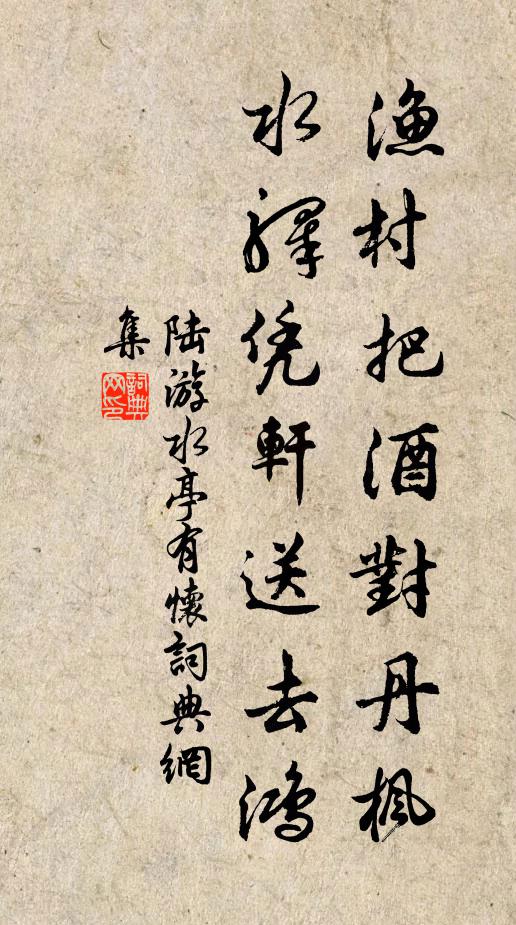 渔村把酒對丹楓
水驛凭軒送去鴻
陆游水亭有懷詞典網
集
詞典
网印